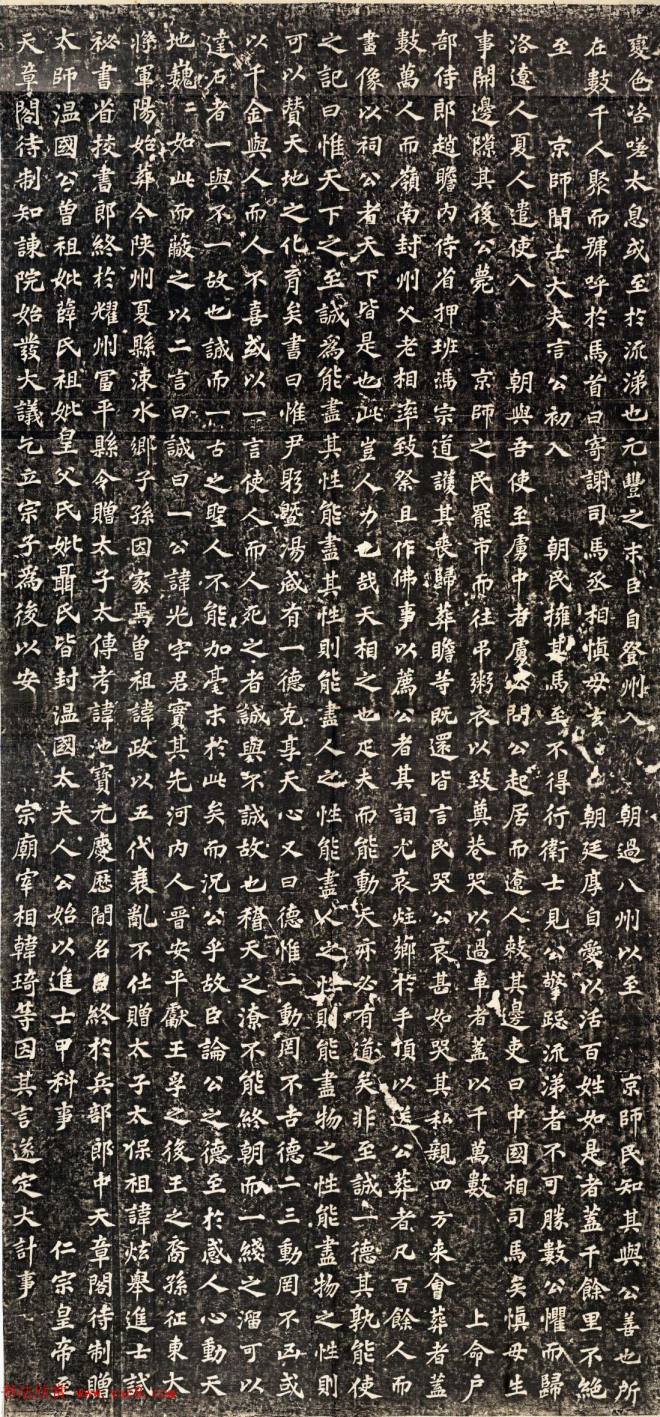 變色咨嗟太息或至於流涕也元豐之末臣自登州入 朝過八州以至 京師民知其與公善也所
在數千人聚而號呼於馬首曰寄謝司馬丞相慎毋去 朝廷厚自愛以活百姓如是者蓋千餘里不絕
至 京師聞士大夫言公初入 朝民擁其馬至不得行衛士見公擎跽流涕者不可勝數公懼而歸
洛遼人夏人遣使入 朝與吾使至虜中者虜必問公起居而遼人敕其邊吏曰中國相司馬矣慎毋生
事開邊隙其後公薨 京師之民罷市而往弔鬻衣以致奠巷哭以過車者蓋以千萬數 上命戶
部侍郎趙瞻內侍省押班馮宗道護其喪歸葬瞻等既還皆言民哭公哀甚如哭其私親四方來會葬者蓋
數萬人而嶺南封州父老相率致祭且作佛事以薦公者其詞尤哀炷薌於手頂以送公葬者凡百餘人而
畫像以祠公者天下皆是也此豈人力也哉天相之也匹夫而能動天亦必有道矣非至誠一德其孰能使
之記曰惟天下之至誠為能盡其性能盡其性則能盡人之性能盡人之性則能盡物之性能盡物之性則
可以贊天地之化育矣書曰惟尹躬暨湯咸有一德克享天心又曰德惟一動罔不吉德二三動罔不凶或
以千金與人而人不喜或以一言使人而人死之者誠與不誠故也稽天之潦不能終朝而一綫之溜可以
達石者一與不一故也誠而一古之聖人不能加毫末於此矣而況公乎故臣論公之德至於感人心動天
地巍二如此而蔽之以二言曰誠曰一公諱光字君實其先河內人晉安平獻王孚之後王之裔孫征東大
將軍陽始葬今陝州夏縣涑水鄉子孫因家焉曾祖諱政以五代衰亂不仕贈太子太保祖諱炫舉進士試
祕書省校書郎終於耀州富平縣令贈太子太傅考諱池寶元慶曆間名臣終於兵部郎中天章閣待制贈
太師溫國公曾祖妣薛氏祖妣皇父氏妣聶氏皆封溫國太夫人公始以進士甲科事 仁宗皇帝至
天章閣待制知諫院始發大議乞立宗子為後以安 宗廟宰相韓琦等因其言遂定大計事